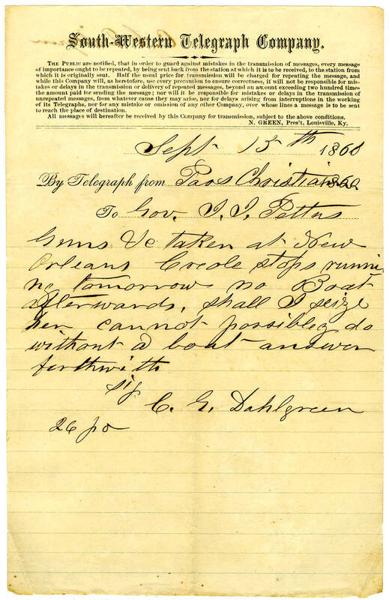 South-Western Telegraph Company,
THE PUBLIC are notified, that in order to guard against mistakes in the transmission of messages, every message
of importance ought to be repeated, by being sent back from the station at which it is to be received, to the station from
which it is originally sent. Half the usual price for transmission will be charged for repeating the message, and
while this Company will, as heretofore, use every precaution to ensure correctness, it will not be responsible for mis-
takes or delays in the transmission or delivery of repeated messages, beyond an amount exceeding two hundred times
the amount paid for sending the message; nor will it be responsible for mistakes or delays in the transmission of
unrepeated messages, from whatever cause they may arise, nor for delays arising from interruptions in the working
of its Telegraphs, nor for any mistake or omission of any other Company, over whose lines a message is to be sent
to reach the place of destination.
All messages will hereafter be received by this Company for transmission, subject to the above conditions.
N. GREEN, Pres't, Louisville, Ky.
Sept 15th 1860
By Telegraph from Pass Christian 1860
To Gov. J. J. Pettus
Guns &c taken at New
Orleans Creole stops runni
ng tomorrow no Boat
afterwards, shall I seize
her cannot possibly do
without a boat answer
forthwith
sig
C. G. Dahlgreen
26 pd